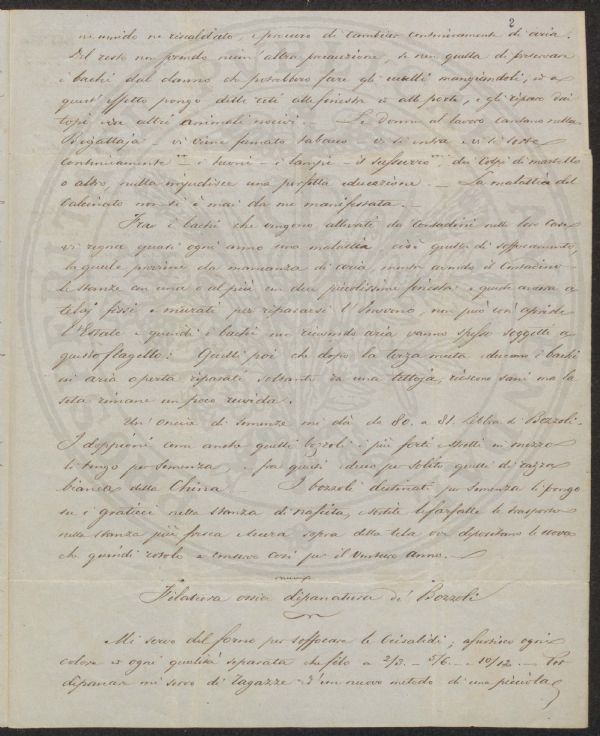 2
nè umido nè riscaldato, e procuro di cambiar continuamente di aria.
Del resto non prendo niun' altra precauzione, se non quella di preservare
i bachi dal danno che potrebbero fare gli uccelli mangiandoli, ed a
quest' effetto pongo delle reti alle finestre ed alle porte, e gli riparo dai
topi ed altri animali nocivi. — Le donne al lavoro cantano nella
Bigattaja — vi viene fumato tabacco — vi si entra e vi si sorte
continuamente — i tuoni — i lampi — il sussurro dei colpi di martello
o altro, nulla impedisce una perfetta educazione. — La malattia del
Calcinato non si è mai da me manifestata. —
Fra i bachi che vengono allevati da Contadini nelle loro Case
vi regna quasi ogni anno una malattia cioè quella di soffocamento,
la quale proviene da mancanza di aria, mentre avendo il Contadino
le stanze con una o al più con due piccolissime finestre e queste ancora a
telaj fissi e murati per ripararsi l'Inverno, non può così aprirle
l'Estate e quindi i bachi non ricevendo aria vanno spesso soggetti a
questo flagello: Quelli poi che dopo la terza muta educano i bachi
in aria aperta riparati soltanto da una tettoja, riescono sani ma la
seta rimane un poco ruvida.
Un' oncia di semenza mi dà da 80. a 81. Libbre di Bozzoli.
I doppioni come anche quelli bozzoli i più forti e stretti in mezzo
li tengo per semenza, e fra questi educo per solito quelli di razza
bianca della China — I bozzoli destinati per semenza li pongo
su i graticci nella stanza di nascita, sortite le farfalle le trasporto
nella stanza più fresca e scura sopra della tela ove depositano le uova
che quindi rotolo e conservo così per il venturo anno. —
Filatura ossia dipanatura de' Bozzoli
Mi servo del forno per soffocare le Crisalidi; ogni
colore ed ogni qualità separata che filo a 2/3 — 5/6 — e 10/12. — Per
dipanare mi servo di Ragazze e d'un nuovo metodo di una piccola